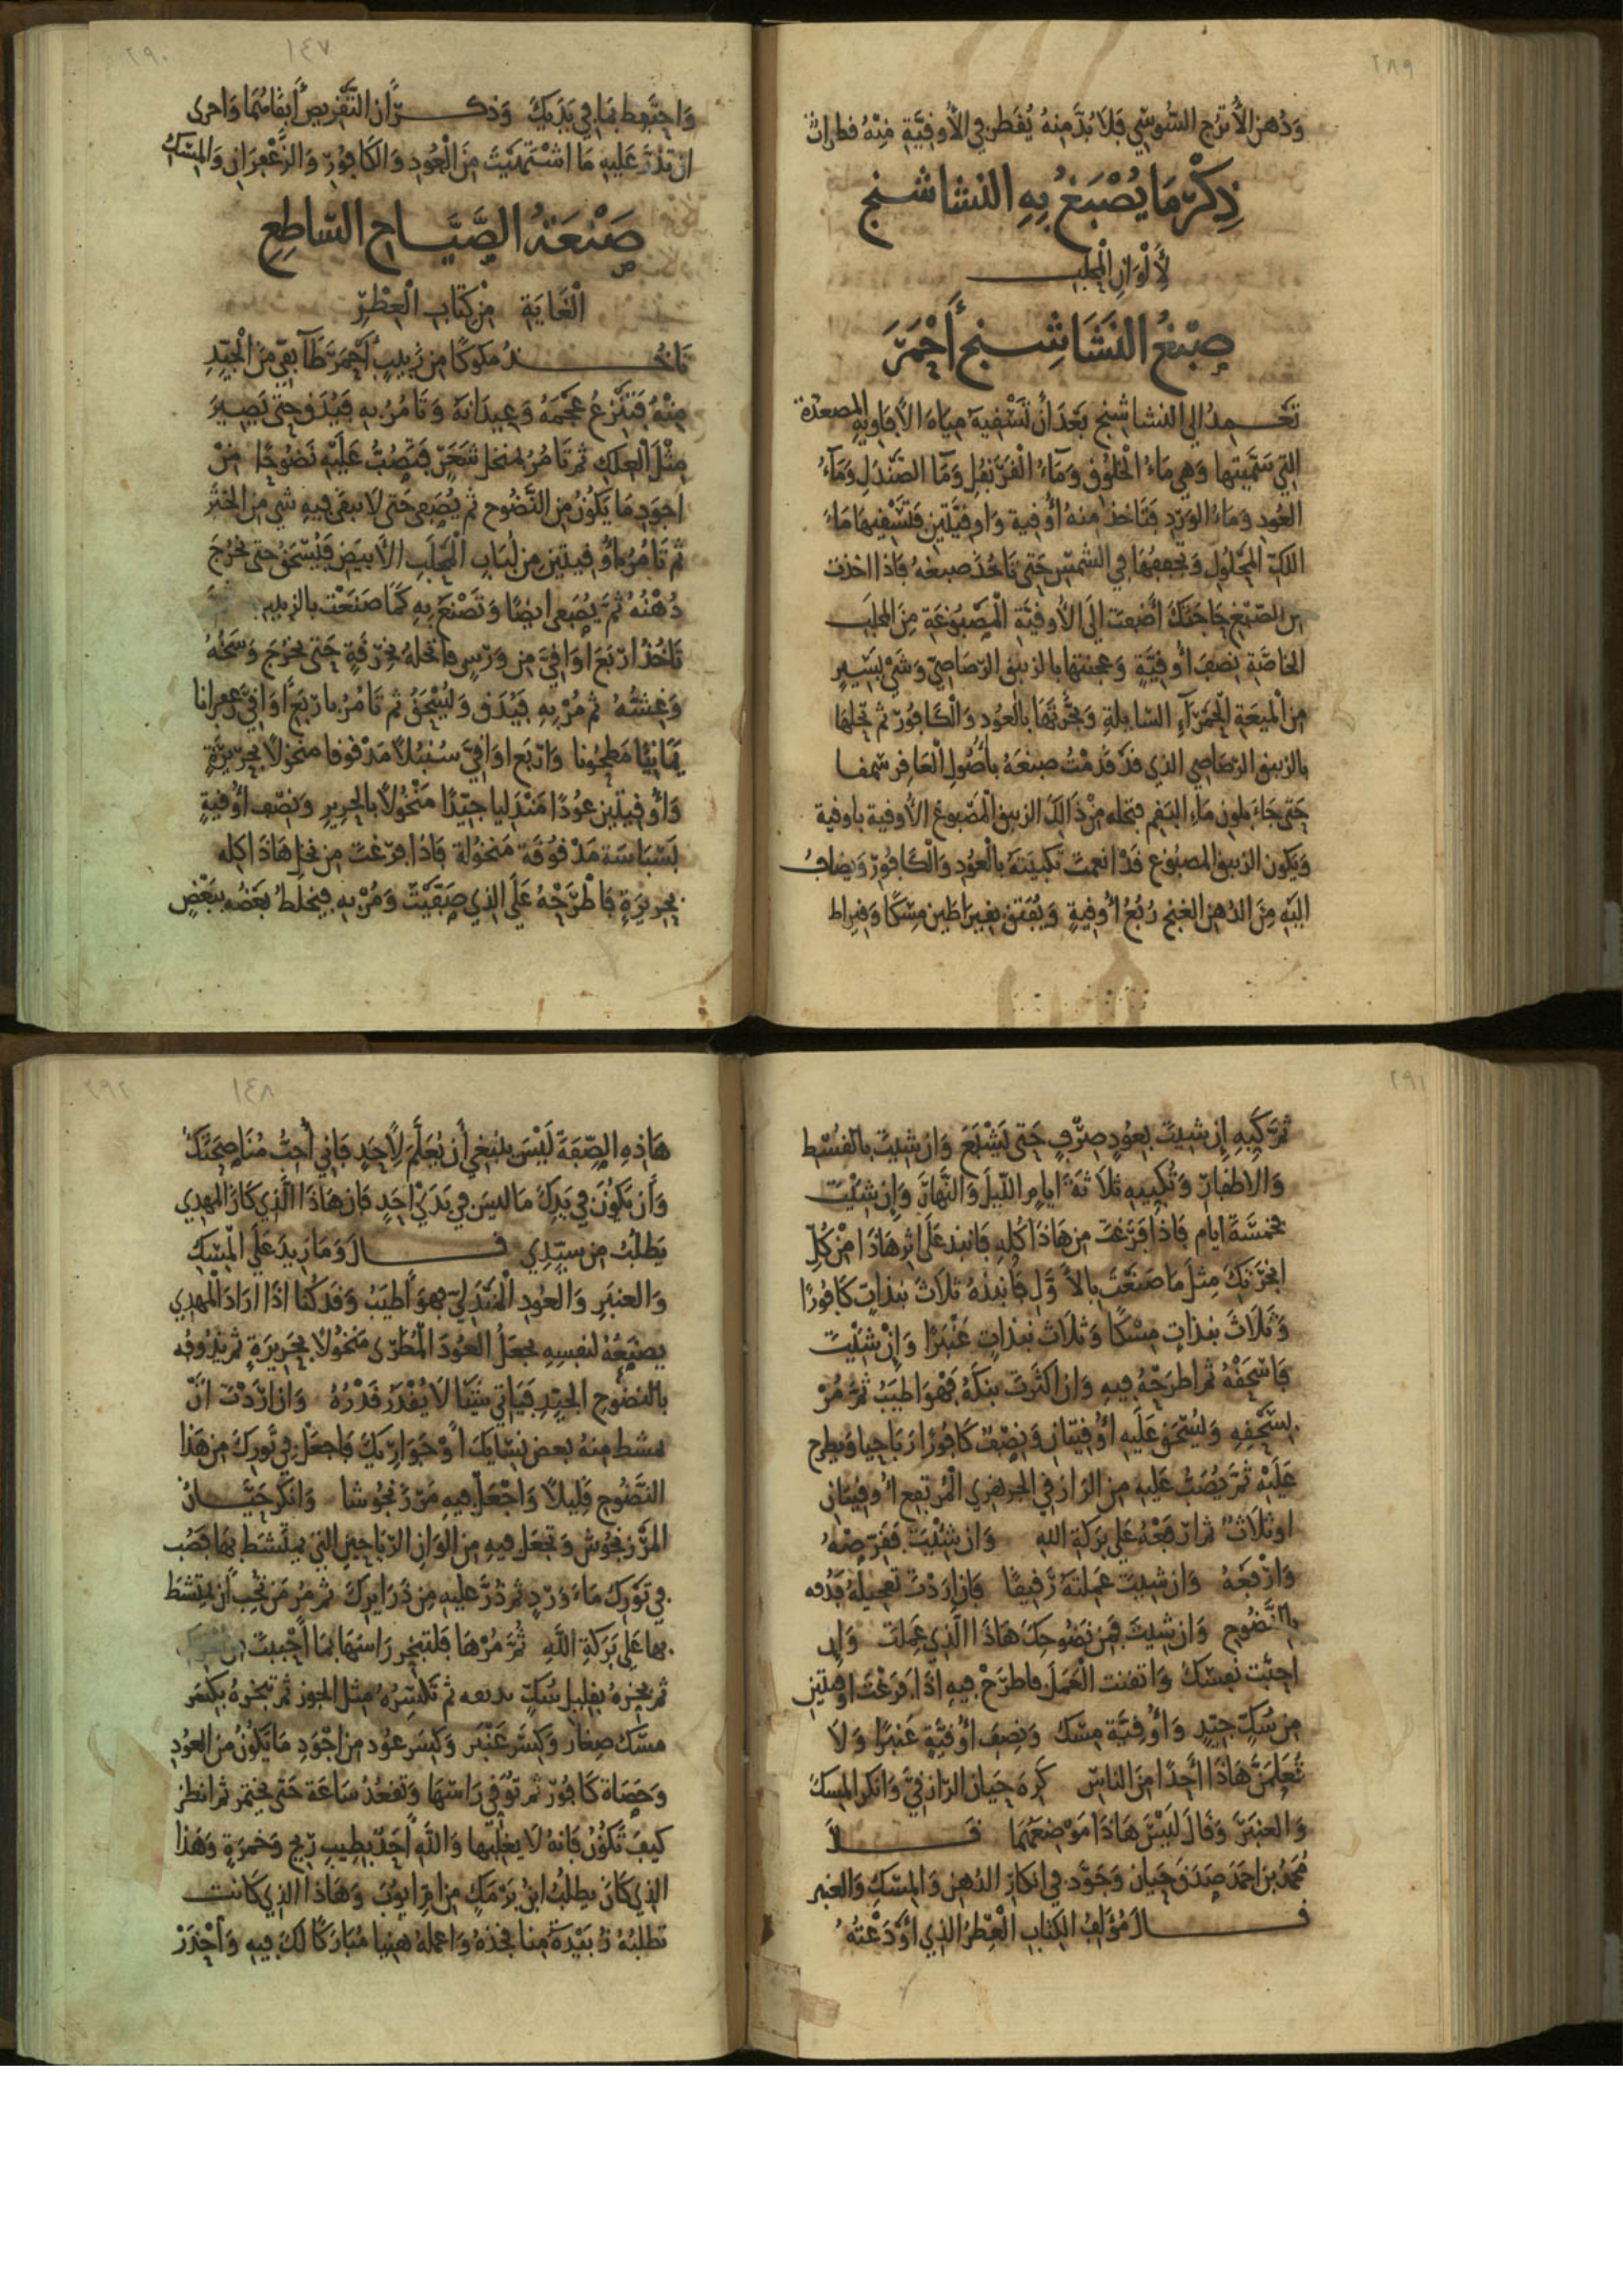 ٢٨٩
وَدُهن الأُترُج السُّوسِّي فَلَا بُدَّ مِنهُ يُقَطر في الأُوقيَّةِ مِنْهُ قطرات
ذِكْرُ مَا يُصْبَغُ بِهِ النشاشنج
لِأَلْوَانِ الْمحْلب
صِبْغُ النَّشَاشِنج أَحْمَرَ
تَعْمِدُ الى النشاشنج بَعْدَ أَنْ تَسْقيَهُ مِيَاهَ الأفَاويهِ المصعدة
التي سَمَّيتها وَهي مَاءُ الْخلُوق وَمَاءُ الْقَرَنفُلِ وَمَاء الصَّنْدَلِ وَمَاءُ
العُودِ وَمَاءُ الوَرْدِ فَتَاخذ مِنهُ أُوقية وَاوقيَّتَينِ فَتَسْقيهَا مَاءَ
اللَّكِّ المحْلُولِ وَتجعلهَا في الشمسِ حَتى تَاخُذ صبغهُ فاذا اخذت
من الصّبْغِ حَاجَتَكَ أَضَفتَ إلى الأُوقيَّةِ الْمَصْبُوغَةِ مِنَ المحلَبِ
الخاصَّةِ نِصْفَ أُوقيَّةٍ وَعجنتها بالزنبق الرّصَاصيّ وَشَيْ يَسِيرٍ
مِنَ الْميعَةِ الْحَمْرَآءِ السَّايلةِ وَبخَّرتَهَا بالعُودِ وَالْكَافُور ثم تحلهَا
بالزنبق الرّصَاصي الذي قَدْ قَدَّمْتُ صبْغَهُ بأُصُولِ الْعَاقر شمعا
حَتى جَاءَ بلون مَاءِ البَقم فتحله مِنْ ذَالِكَ الزنبق الْمَصْبُوغ الأُوقية باوقية
وَيكون الزنبق المصبُوغ قَدْ انعمتَ تَكبيتَهُ بالْعُود وَالْكَافُور وَيضافُ
اليْهِ مِنَ الدُهن الغنج رُبْعُ أُوقيةٍ وَيُفتق بقيرَاطَين مِسْكًا وَقيراط
٢٩٠
١٤٧
وَاحتَفِظ بمَا في يَدَيكَ وَذكر أَن التَّقْريصَ أَبقَا لهُمَا وَاحرى
ان تذرَّ عَلَيهِ مَا اشْتَهَيْتَ مِنَ الْعُودِ وَالكَافُور وَالزَّعْفَرَانِ وَالمِسْكِ
صَنْعَةُ الصَّيَّاحِ السَّاطِعِ
الْغَايَةِ مِنْ كِتَابِ الْعِطْرِ
تَاخُذُ مكوكًا مِن زَبيبٍ أَحْمَرَ طَآيفيّ مِنَ الْجَيِّدِ
مِنْهُ فَتَنْزِعُ عَجَمَهُ وَعِيدَانَهُ وَتَامُرُ بهِ فَيُدَق حَتى يَصِيرَ
مِثْلَ الْعِلكِ ثم تَامُرُ بمنخل شَعَرٍ فَتصُبُّ عَلَيْهِ نَضُوحًا مِنْ
أَجوَدِ مَا يَكُونُ مِنَ النَّضُوح ثم يُصَفى حَتى لَا يبقَى فيهِ شي مِنَ الخثر
ثم تَامُرُ باُوقيتَين مِن لُبَابِ الْمحْلَبِ الأَبيَضِ فَيُسْحَقُ حَتى يخرُجَ
دُهْنُهُ ثم يُصَفى ايضًا وَتَصْنَعُ بِهِ كَمَا صَنَعْتَ بالزبيب ثم
تَاخُذُ ارْبَعَ اوَاقيّ مِن وَرْسٍ فانخلهُ بخِرْقَةٍ حَتى يخرُجَ وَسَخُهُ
وَغِشُّهُ ثم مُرْ بِهِ فَيُدَق وَليُسْحَقْ ثم تَامُرُ بارْبَعِ أَوَاقيّ زعفرانا
يَمَانيًّا مَطحُونا وَارْبَع اوَاقيّ سُنبُلاً مَدْقوقا منخولاً بحرِيرَةٍ
وَأُوقيتَين عُودًا مَنْدَليا جَيِّدًا مَنْخُولاً بالحرِيرِ وَنِصْف أُوقيةٍ
بَسْبَاسَة مَدْقُوقَة مَنخُولَة فاذا فَرَغتَ مِن نخلِ هَاذَا كله
بحرِيرَةٍ فَاطْرَحْهُ عَلَى الذِي صَفَّيْتَ وَمُرْ بهِ فيُخلط بَعْضُه ببَعْضٍ
٢٩١
ثمَّ كَبِّهِ إن شيتَ بعُودٍ صِرْفٍ حَتى يَشْبَعَ وَان شيتَ بالقُسْطِ
وَالاظفار وَتُكبيهِ ثَلاثَةَ ايامٍ اللّيلَ وَالنَّهَارَ وَإن شئْتَ
خمسَةَ ايام فَاذا فَرَغتَ مِن هَاذَا كُلهِ فَانبذ عَلَى اثر هَاذَا مِنْ كُلِّ
ابخرَتِكَ مِثلَ مَا صَنَعْتَ بالأَوَّلِ فانبذهُ ثَلاثَ نبذَاتٍ كَافُورًا
وَثَلَاثَ نبذاتٍ مِسْكًا وَثَلاثَ نبذاتٍ عَنْبَرًا وَإِنْ شئْتَ
فَاسْحَقْهُ ثم اطرَحْهُ فيهِ وَان اكثَرتَ بنكَهُ فَهْوَ اطيَبُ ثم مُرْ
بسَحْقِهِ وَليُسْحَق عَلَيهِ أُوقيتان وَنِصْفٌ كَافُورًا رَبَاحِيا وَيطرح
عَلَيْهِ ثمَّ يُصَبُّ عَلَيهِ مِنَ الرَازقي الجوهري الْمرتفِع أُوقيتان
او ثَلَاثٌ ثم ارْفَعْهُ عَلَى بَرَكَةِ اللهِ وَان شئْتَ فقَرِّصْهُ
وَارْفَعهُ وَان شيتَ عَمِلتَهُ رَقيقًا فَان ارَدْتَ تَعجيلهُ فَدُفه
بالنَّضُوح وَان شيتَ فَمِن نَضُوحِكَ هَاذَا الَّذِي عَمِلتَ وَإن
احبَبْت نفسَكَ وَاتقنت الْعَمَلَ فاطرَحْ فيهِ اذَا فَرَغْتَ اوقيتَين
مِن سُكٍّ جَيِّدٍ وَأُوقيَّةٍ مِسْك وَنِصفَ أُوقيَّةٍ عَنبَرًا وَلَا
تُعَلِّمَنَّ هَاذَا أَحَدًا مِنَ الناسِ كَرِهَ حَيان الرَّازقيَّ وَانكر المسكَ
وَالعنبَرَ وَقَالَ لَيْسَ هَاذَا مَوْضِعَهُمَا قَالَ
مُحمدُ بن احمَدَ صَدَقَ حَيان وَجَوَّد في انكار الدُهن وَالمسكِ وَالعنبر
قَالَ مُؤَلفُ الكتابِ الْعِطْرُ الذي أَوْدَعْتُهُ
٢٩٢
١٤٨
هَاذِهِ الصِّفَةَ لَيْسَ ينبَغي أَن يُعَلَّمَ لأَحَدٍ فَاني أُحِبُّ مُنَاصَحَتَكَ
وَأَن يَكُونَ في يَدِكَ مَا لَيسَ في يَدَيْ احَدٍ فَان هَاذَا الَّذي كَانَ المهدي
يَطلُبُ مِن سيّدِي قَالَ وَمَا زِيدَ عَلَى المسْكِ
وَالعنبَرِ وَالعُودِ الْمَنْدَليّ فهوَ أَطيَبُ وَقَد كُنا اذَا ارَادَ الْمَهدي
يصنَعُهُ لنفسِهِ نجعَلُ العُودَ الْمُطَرَّى مَنخُولاً بحرِيرَةٍ ثم نَدُوفُه
بالنضُوح الجيّدِ فيَاتي شيئًا لَا يُقْدَرُ قَدْرُهُ وَان ارَدْتَ أَنْ
تمشط مِنهُ بعض نِسَايكَ أَوْ جَوَارِيكَ فَاجعَل في تَورِكَ مِن هَذا
النَّضُوحِ قَلِيلاً وَاجْعَل فيهِ مَرْزنجُوشا وَانكَر حَيَّانُ
المَرْزنجُوش وَتجعَل فيهِ مِن الوَانِ الرّيَاحِينِ التي يمتَشَط بهَا فَصُب
في تَوْرِكَ مَاءَ وَرْدٍ ثم ذُرَّ عليهِ مِن ذَرَايرِكَ ثم مُر مَن تُحِبُّ أَن يَمتشط
بها عَلى بَرَكةِ اللَّهِ ثمَّ مُرْهَا فَلتبَخر رَاسَهَا بمَا أَحْبَبتَ
ثم بخرْهُ بقليل سُكٍّ ثم تَكسّرُهُ مِثل الجوز ثم تبخرهُ بكِسَر
مسك صِغَار وَكِسَر عَنْبَر وَكِسَر عُود مِن اجْوَدِ مَا يَكُونُ مِنَ العُودِ
وَحَصَاة كَافُور ثم تُوقي رَاسَهَا وَتَقعُدُ سَاعَة حَتى يختمر ثم انظر
كيفَ تَكُونُ فَانهُ لَا يغلبُها وَاللَّهِ أَحَدٌ بطِيبِ رِيحٍ وَخمرَةٍ وَهَذا
الذي كَانَ يطلُبُ ابنُ بَرْمَكٍ مِن ابي ايوُبَ وَهَاذَا الذي كَانَت
تطلبُهُ زُبَيْدَةُ منا فخذهُ وَاعملهُ هنيا مُبَارَكًا لَكَ فيهِ وَأَحْذَرْ